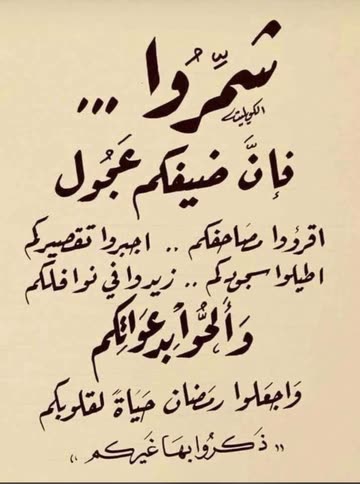 شمِّرُوا ...
الكويليت
فإنَّ ضيفكم عَجُول
اقرؤوا مصَاحفكم .. اجبروا تقصيركم
اطيلوا سجودكم .. زيدوا في نوافلكم
وَألحُّوا بدعَوَاتِكم
وَاجعَلوا رمَضَان حَيَاةً لقلوبكم
،، ذَكِّرُوا بهَا غَيركم ،،